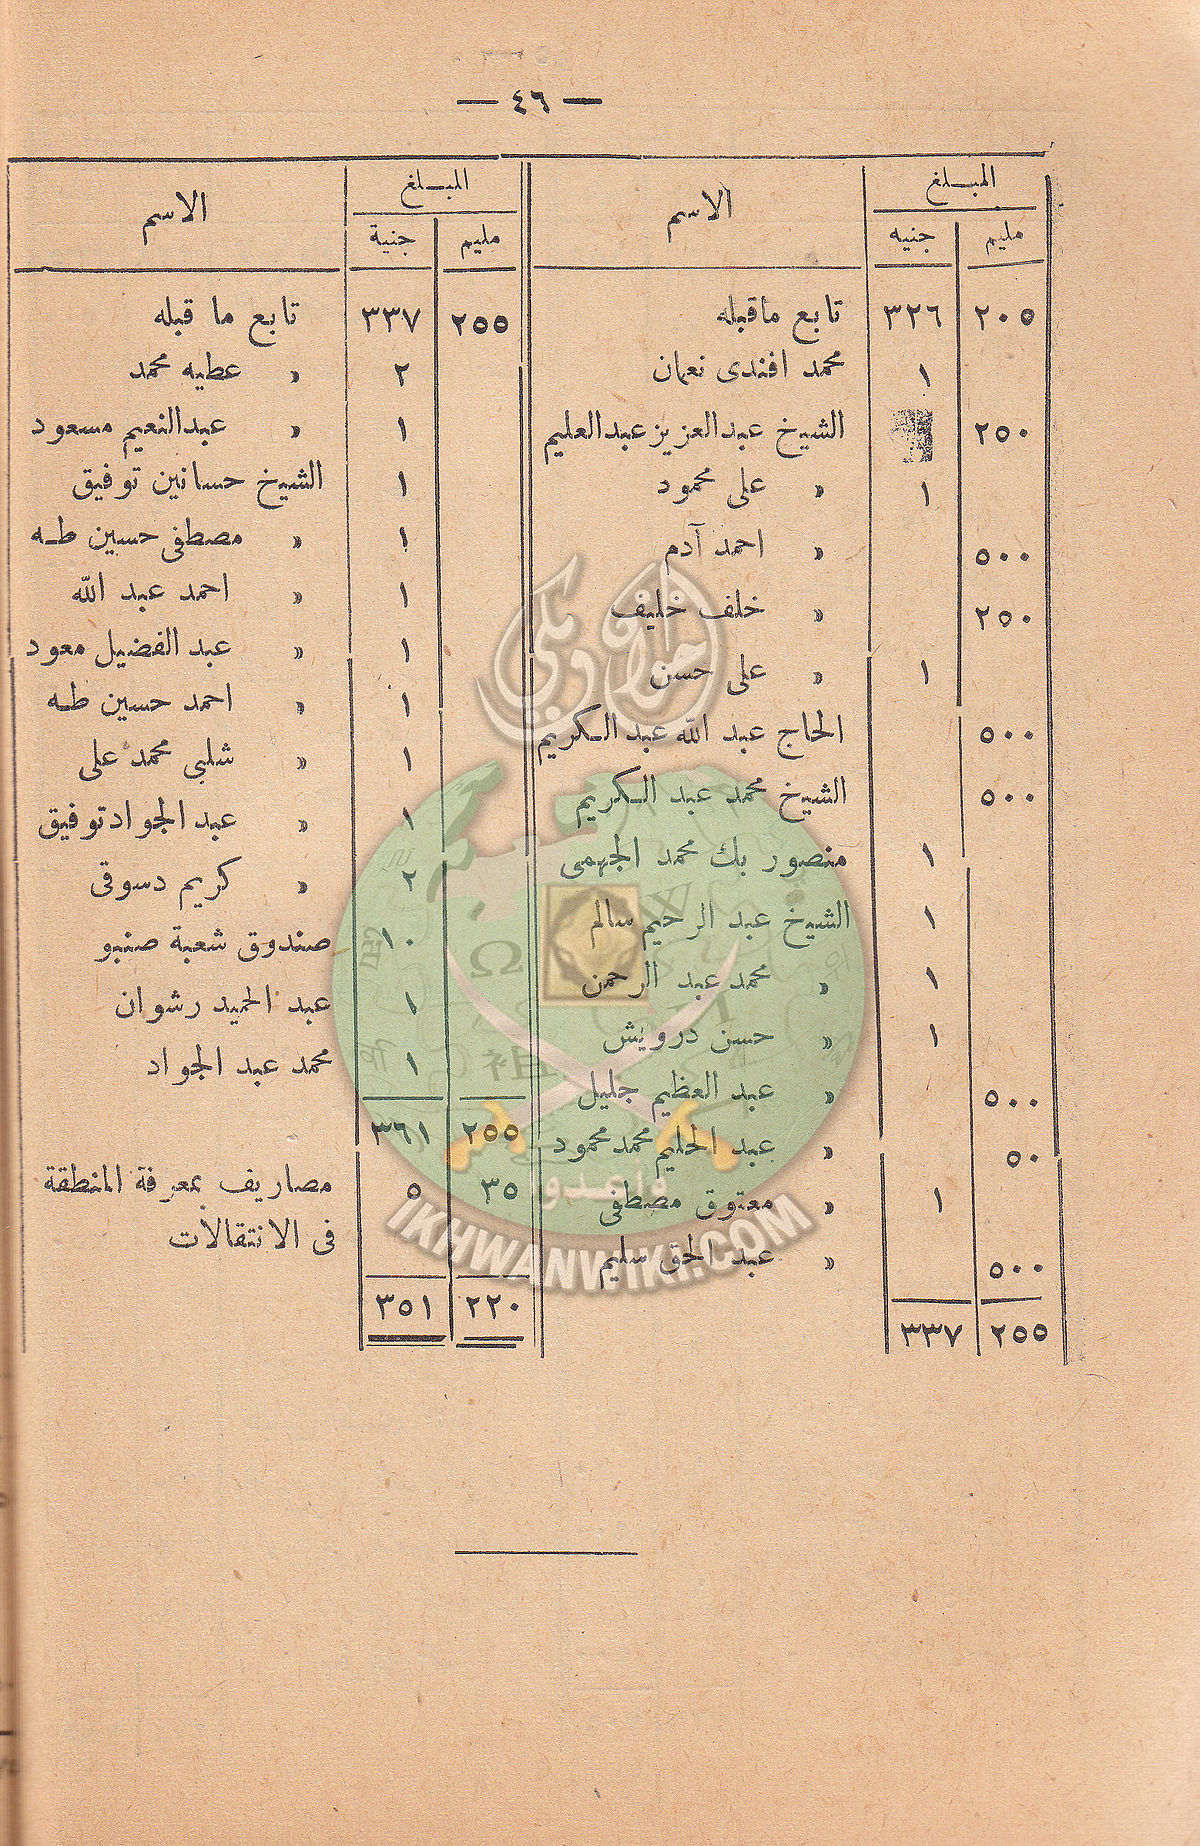 — ٤٦ —
المبلغ الاسم
مليم جنيه
٢٠٥ ٣٢٦ تابع ماقبله
١ محمد افندى نعمان
٢٥٠ الشيخ عبدالعزيز عبدالعليم
١ » على محمود
٥٠٠ » احمد آدم
٢٥٠ » خلف خليف
١ » على حسن
٥٠٠ الحاج عبد الله عبد الكريم
٥٠٠ الشيخ محمد عبد الكريم
١ منصور بك محمد الجهمى
١ الشيخ عبد الرحيم سالم
١ » محمد عبد الرحمن
١ » حسن درويش
٥٠٠ » عبد العظيم جليل
٥٠ » عبد الحليم محمد محمود
١ » معتوق مصطفى
٥٠٠ » عبد الحق سليم
٢٥٥ ٣٣٧
المبلغ الاسم
مليم جنية
٢٥٥ ٣٣٧ تابع ما قبله
٢ » عطيه محمد
١ » عبدالنعيم مسعود
١ الشيخ حسانين توفيق
١ » مصطفى حسين طه
١ » احمد عبد الله
١ » عبد الفضيل معود
١ » احمد حسين طه
١ » شلبى محمد على
١ » عبد الجواد توفيق
٢ » كريم دسوقى
١٠ صندوق شعبة صنبو
١ عبد الحميد رشوان
١ محمد عبد الجواد
٢٥٥ ٣٦١
٣٥ ٥ مصاريف بمعرفة المنطقة
فى الانتقالات
٢٢٠ ٣٥١
إخوان ويكي
وأعدوا
IKHWANWIKI.COM